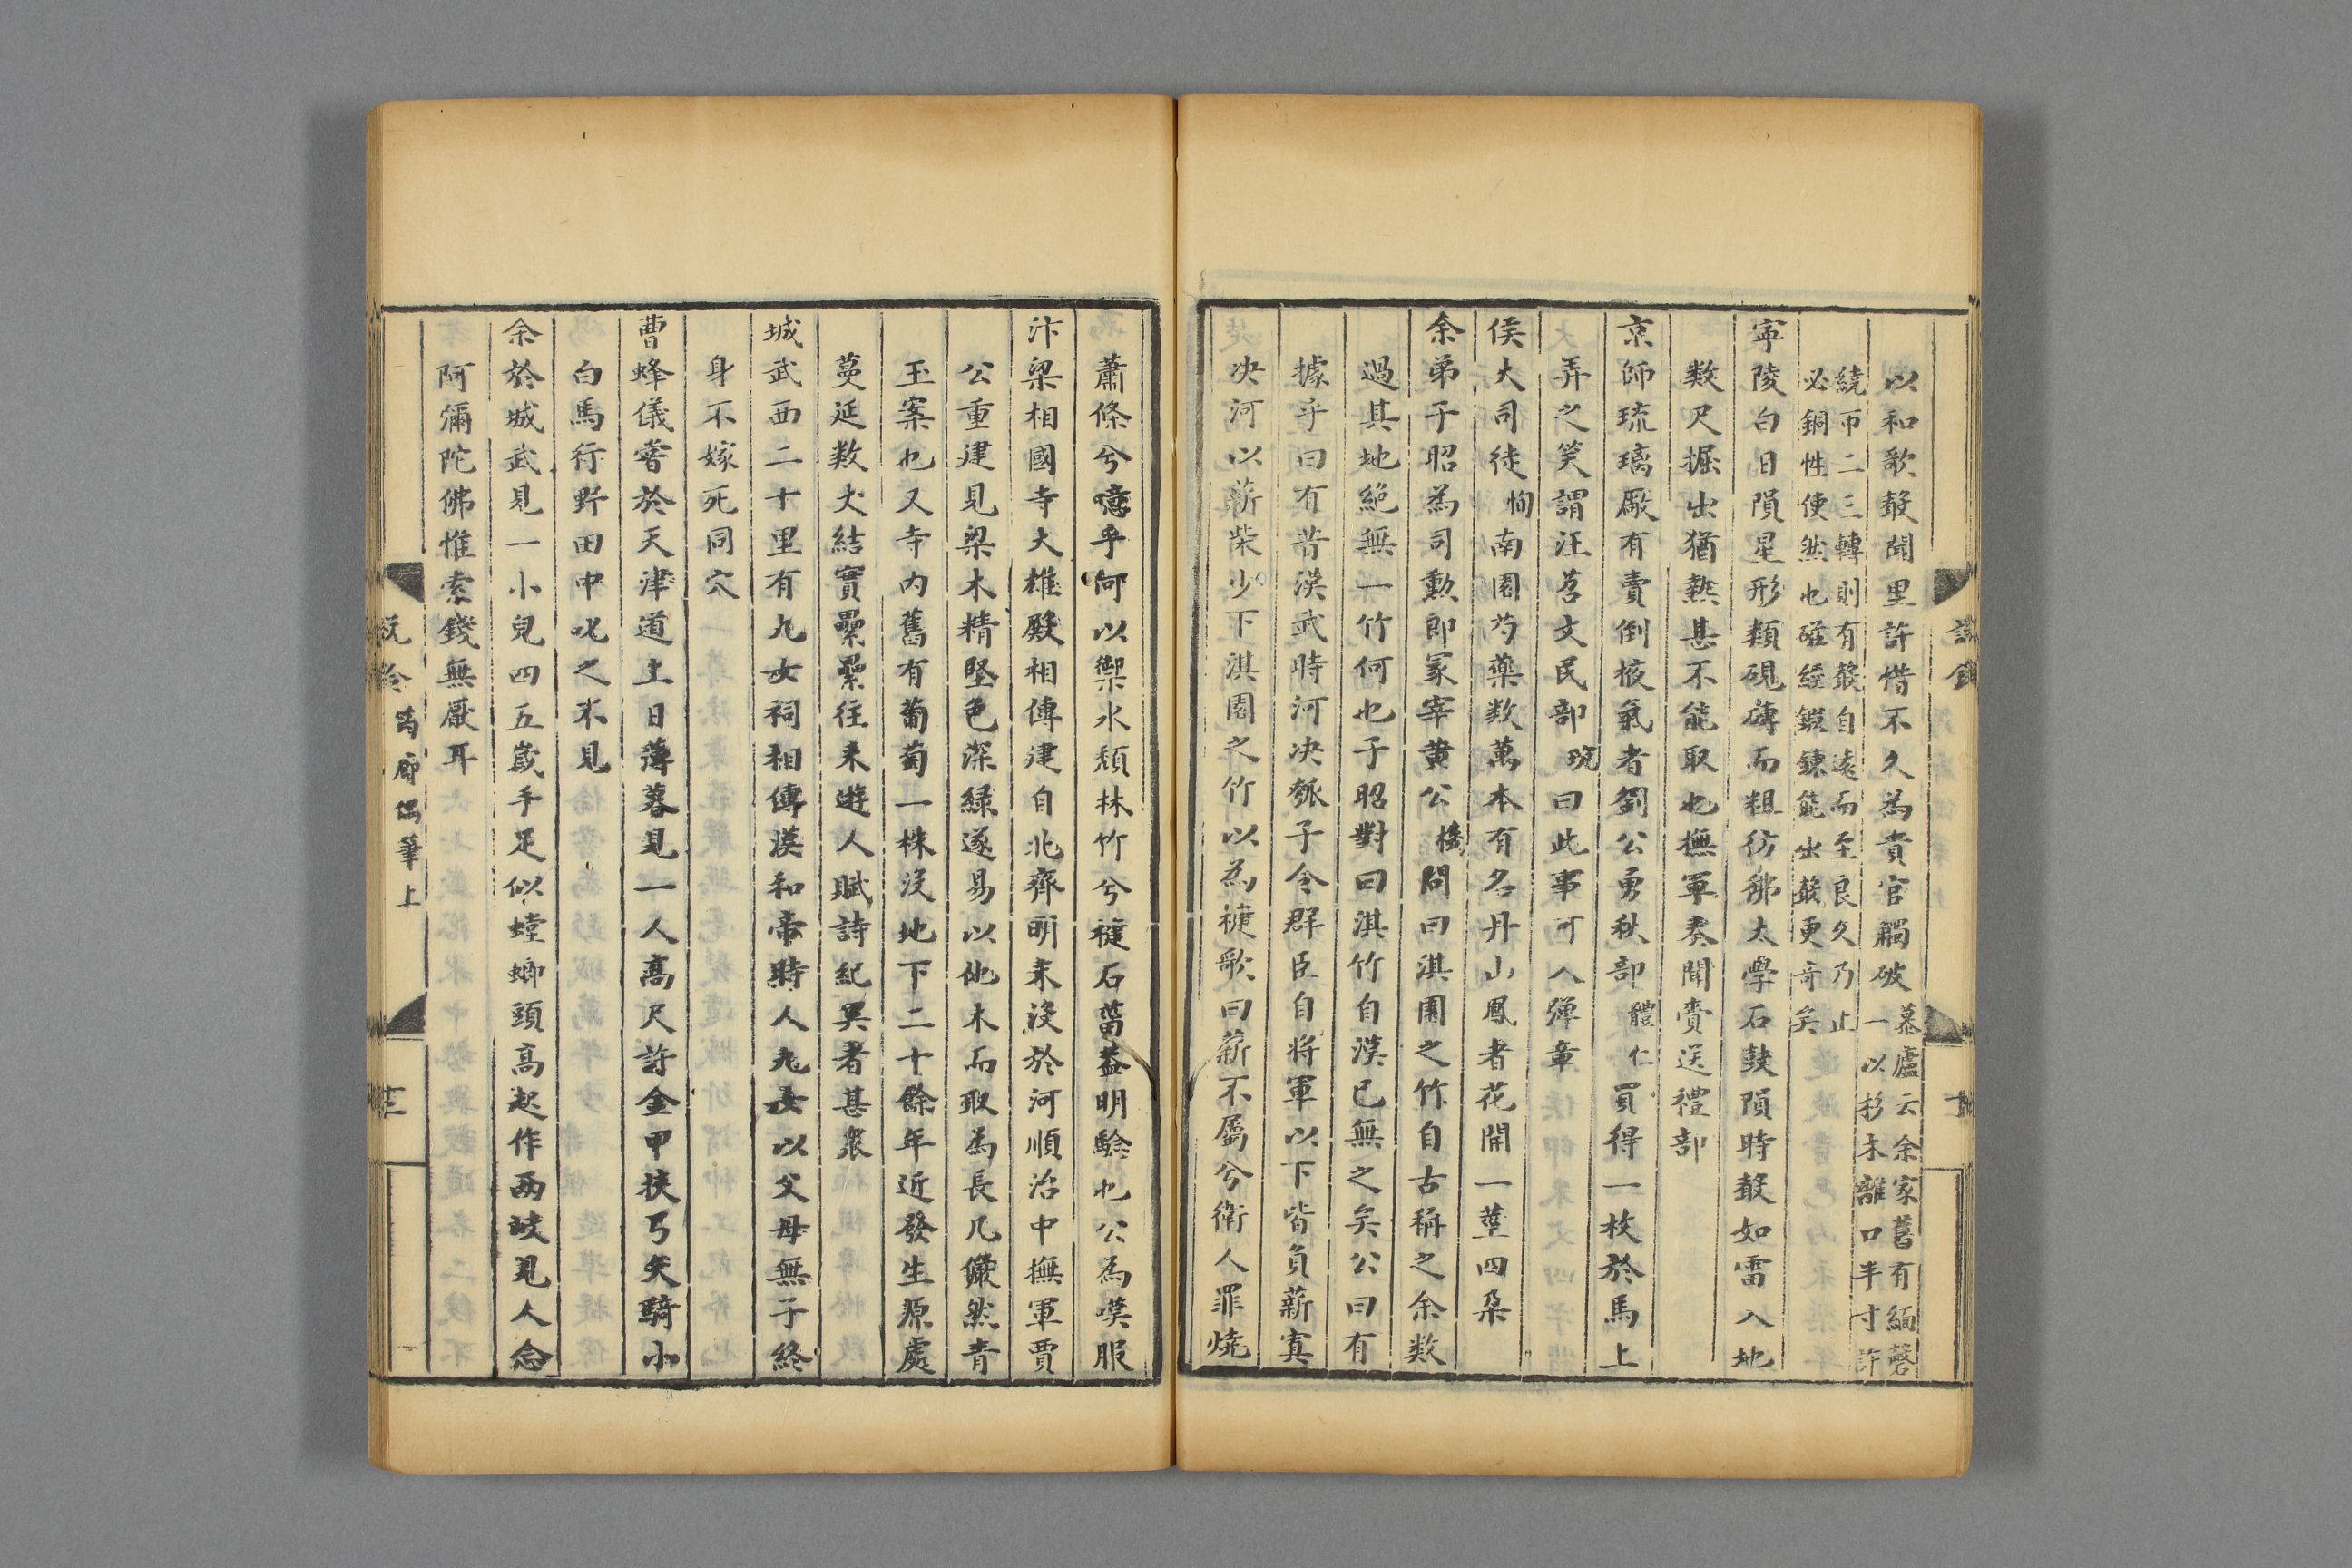 以和歌聲聞里許惜不久為貴官觸破 慕廬云余家舊有緬磬
一以杉木離口半寸許
繞币二三轉則有聲自遠而至良久乃止
必銅性使然也磁經鍜鍊能出聲更奇矣
寧陵白日隕星形類硯磚而粗彷彿太學石鼓隕時聲如雷入地
数尺掘出猶熱甚不能取也撫軍奏聞賫送禮部
京師琉璃厰有賣倒掖氣者劉公勇秋部體仁買得一枚於馬上
弄之笑謂汪苕文民部琬曰此事可入彈章
侯大司徒恂南園芍藥数萬本有名丹山鳳者花開一莖四朶
余弟子昭為司勲郎冡宰黄公機問曰淇園之竹自古稱之余数
過其地絶無一竹何也子昭對曰淇竹自漢已無之矣公曰有
據乎曰有昔漢武時河决瓠子令群臣自将軍以下皆負薪寘
决河以薪柴少下淇園之竹以為楗歌曰薪不属兮衛人罪燒
蕭條兮噫乎何以禦水頽林竹兮楗石菑葢明驗也公為嘆服
汴梁相國寺大雄殿相傳建自北齊明末沒於河順治中撫軍賈
公重建見梁木精堅色深緑遂易以他木而取為長几儼然青
玉案也又寺内舊有葡萄一株沒地下二十餘年近發生原處
蔓延数丈結實纍纍往来遊人賦詩紀異者甚衆
城武西二十里有九女祠相傳漢和帝時人九女以父母無子終
身不嫁死同穴
曹蜂儀嘗於天津道上日薄暮見一人高尺許金甲挾弓矢騎小
白馬行野田中叱之不見
余於城武見一小兒四五歳手足似螳螂頭高起作两岐見人念
阿彌陀佛惟索錢無厭耳
筠廊偶筆上